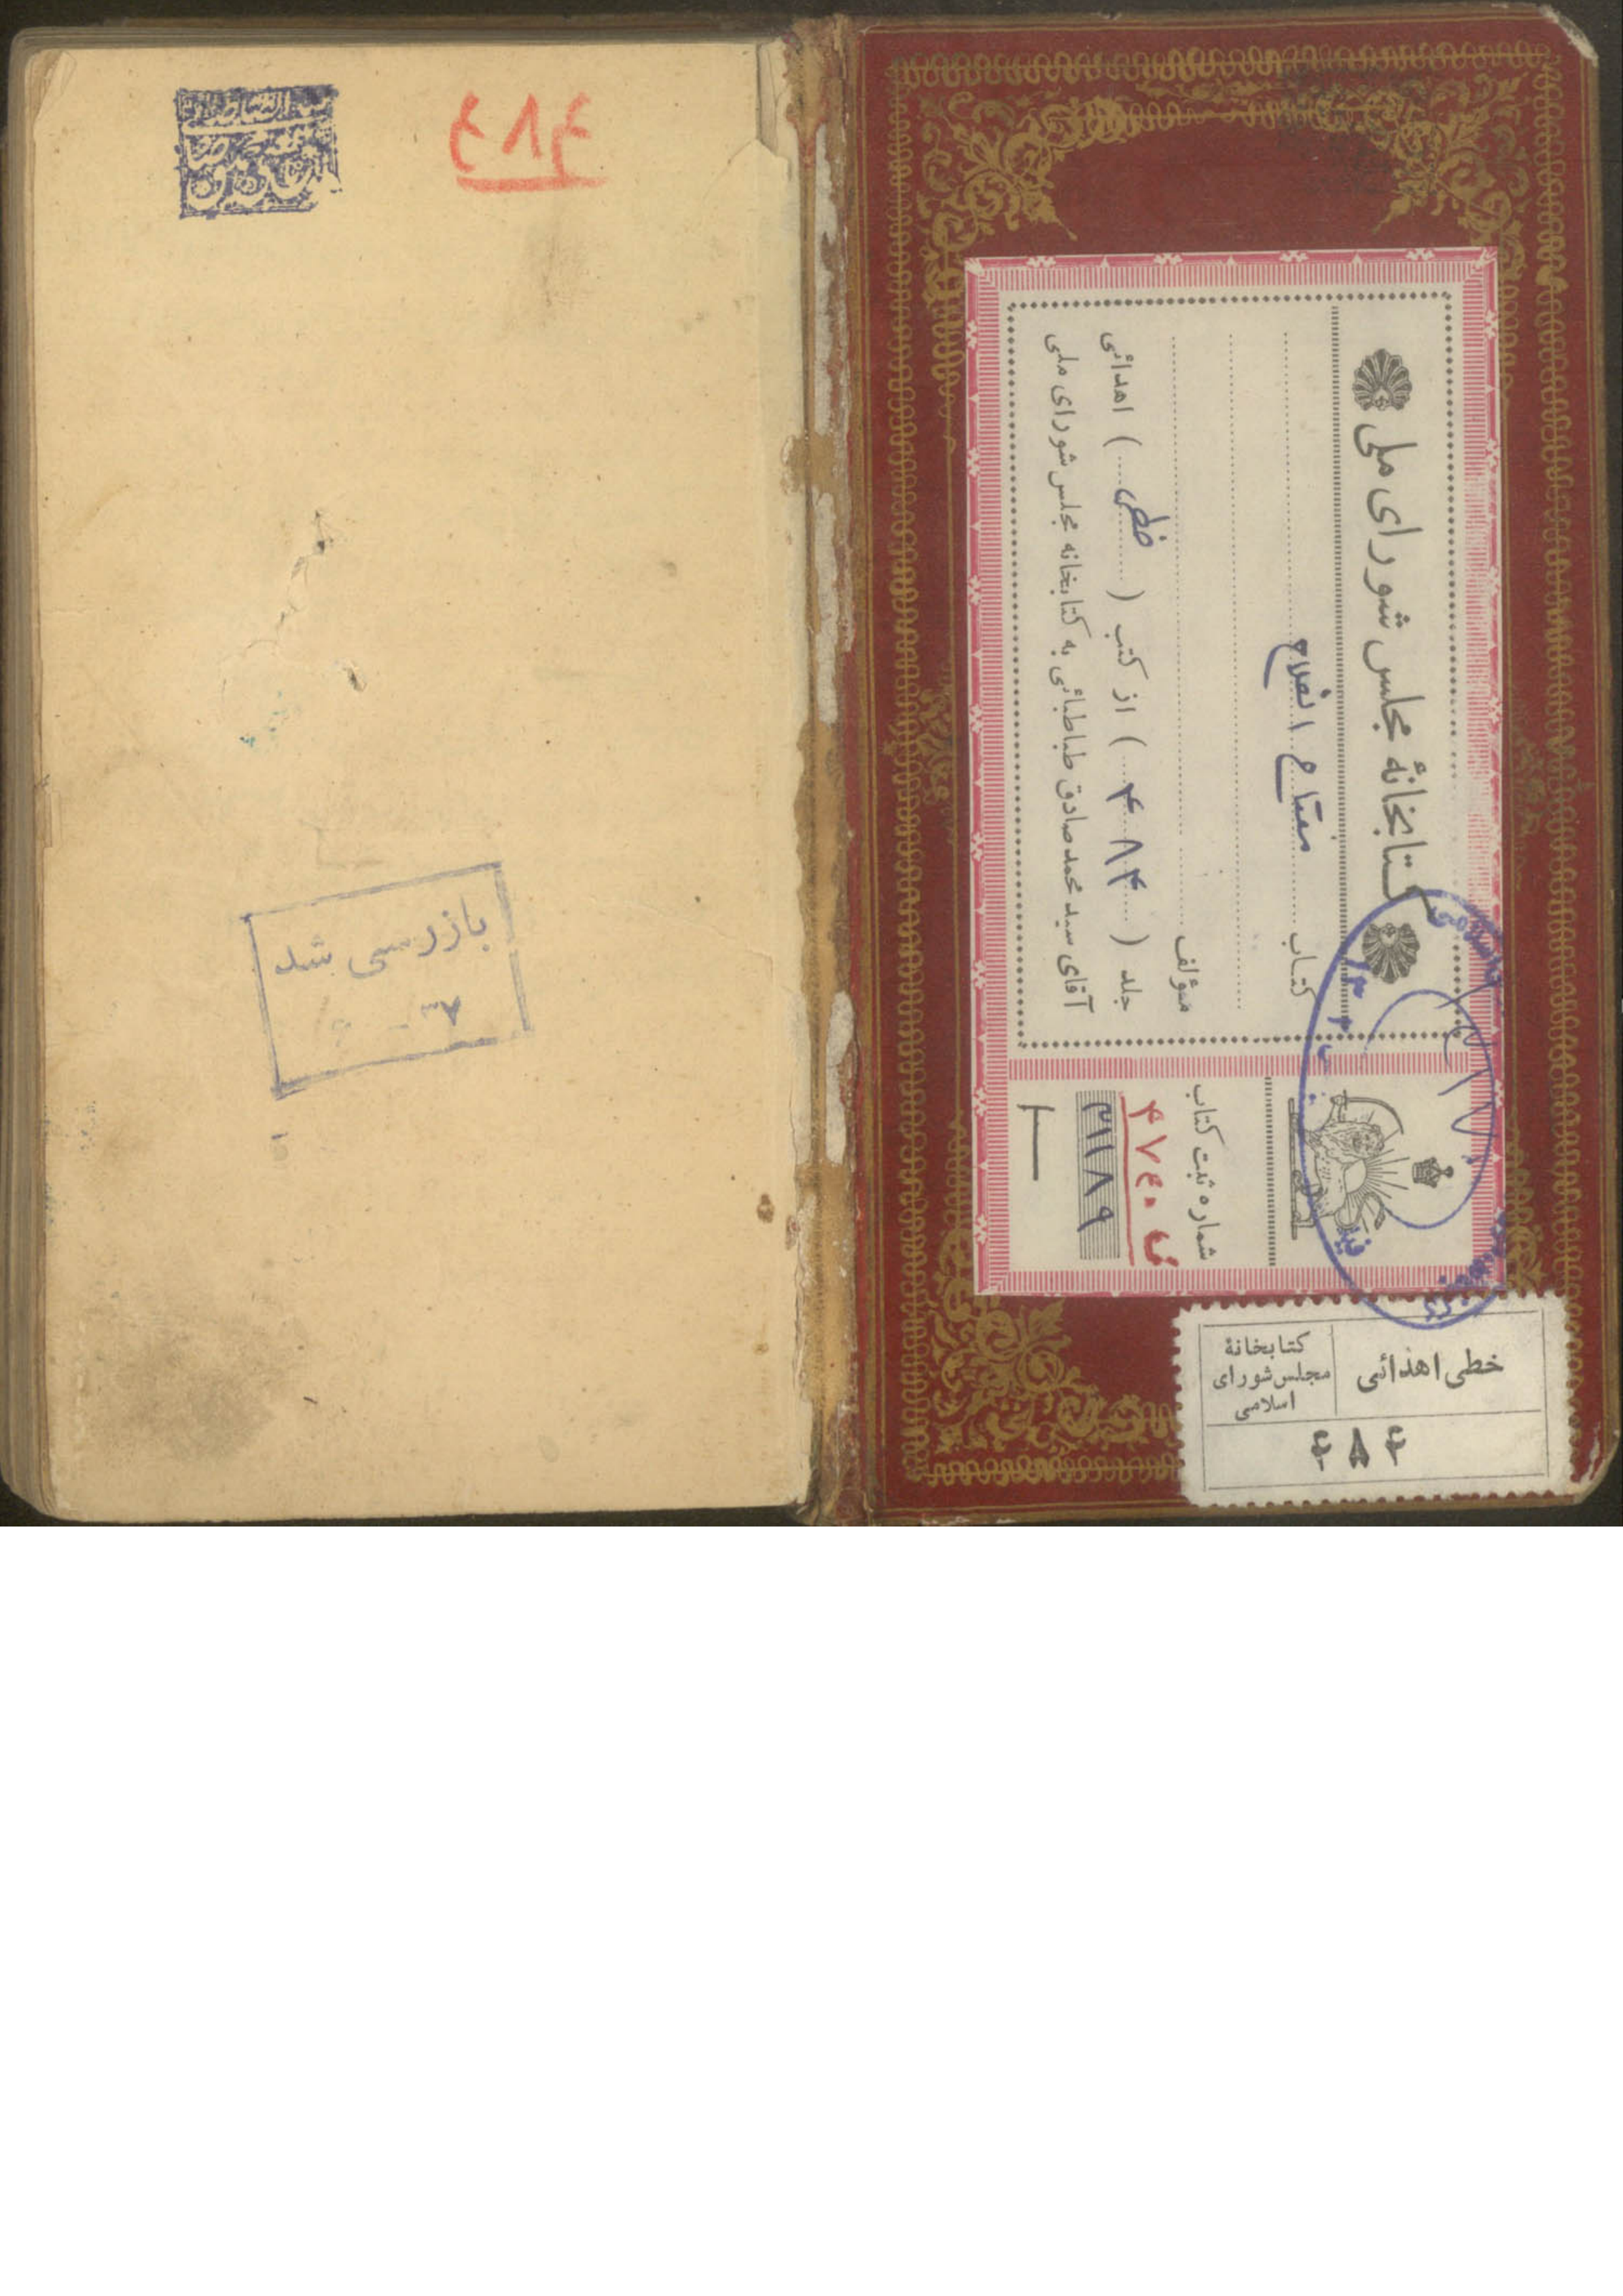 کتابخانهٔ مجلس شورای ملی
کتاب مفتاح الفلاح
مؤلف
جلد ( ۴۸۴ ) از کتب ( خطی ) اهدائی
آقای سید محمد صادق طباطبائی به کتابخانه مجلس شورای ملی
شماره ثبت کتاب
۳۱۱۸۹
خطی اهدائی
کتابخانهٔ
مجلس شورای
اسلامی
۴۸۴
۴۸۴
بازرسی شد
۳۷